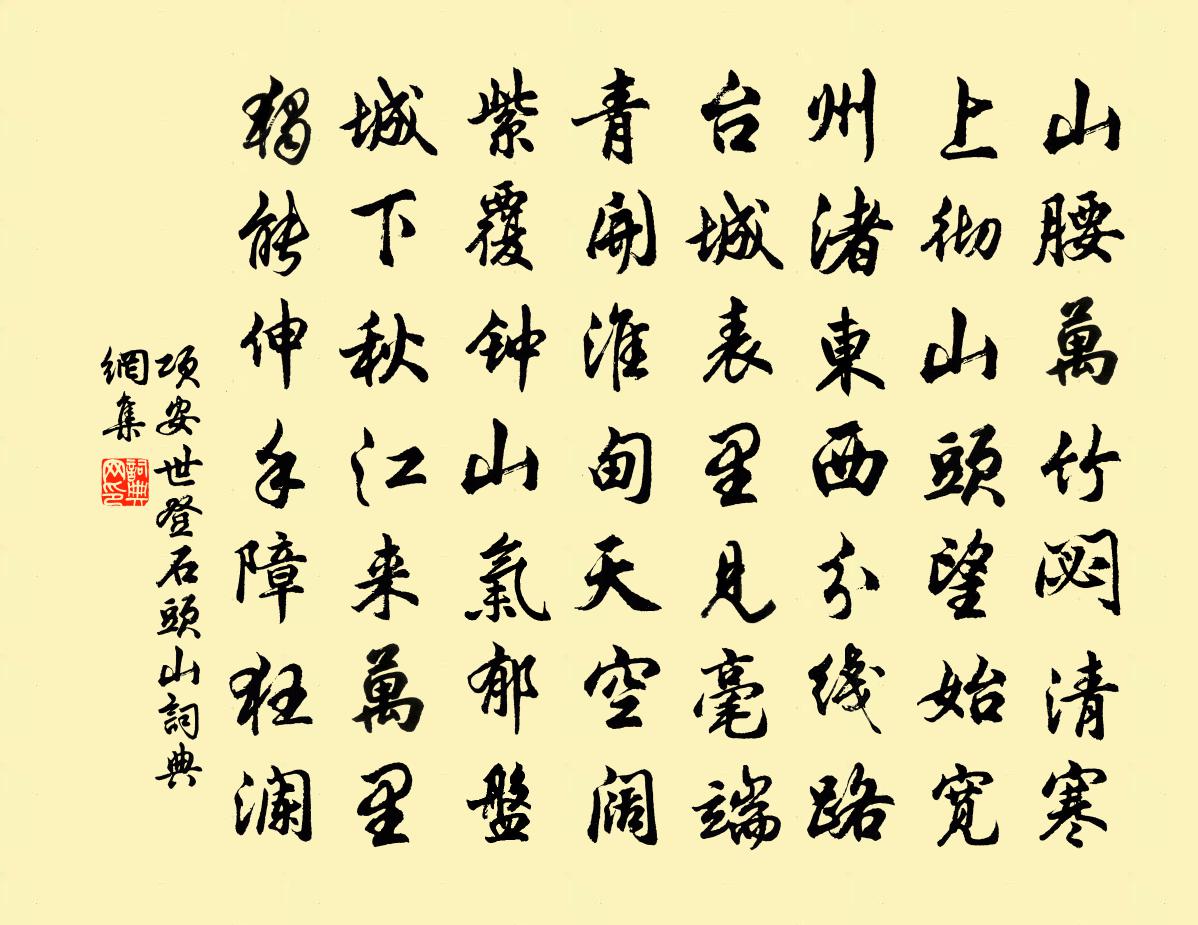 山腰萬竹閟清寒
上彻山頭望始宽
州渚東西分线路
台城表里見毫端
青開淮甸天空阔
紫覆钟山氣郁盤
城下秋江来萬里
獨能伸手障狂澜
項安世登石頭山詞典
網集
詞典
网印